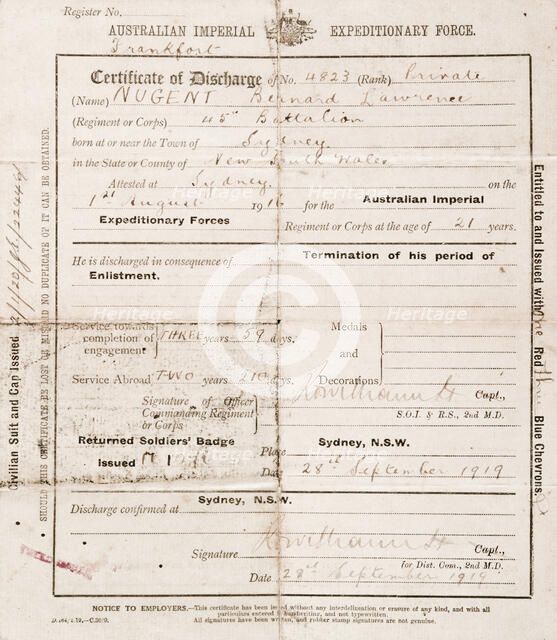 Register No.
AUSTRALIAN IMPERIAL EXPEDITIONARY FORCE.
Frankfort
Certificate of Discharge of No. 4823 (Rank) Private
(Name) NUGENT Bernard Lawrence
(Regiment or Corps) 45th Battalion
born at or near the Town of Sydney
in the State or County of New South Wales
Attested at Sydney. on the
1st August 1916 for the Australian Imperial
Expeditionary Forces Regiment or Corps at the age of 21 years.
He is discharged in consequence of Termination of his period of
Enlistment.
Service towards completion of engagement THREE years 59 days.
Medals and Decorations
Service Abroad TWO years 210 days.
Signature of Officer Commanding Regiment or Corps Capt,
S.O.I & R.S., 2nd M.D.
Returned Soldiers' Badge
Issued
Place Sydney, N.S.W.
Date 28th September 1919
Discharge confirmed at Sydney, N.S.W.
Signature Capt,
for Dist. Com., 2nd M.D.
Date 28th September 1919
NOTICE TO EMPLOYERS.—This certificate has been issued without any interdelization or erasure of any kind, and with all
particulars entered in handwriting, and not typewritten.
All signatures have been written, and rubber stamp signatures are not genuine.
Civilian Suit and Cap Issued
SHOULD THIS CERTIFICATE BE LOST OR MISLAID NO DUPLICATE OF IT CAN BE OBTAINED.
Entitled to and Issued with One Red three Blue Chevrons.
Heritage Images